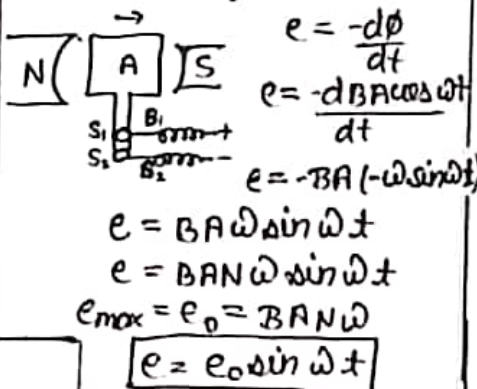 N A S
S₁ B₁ +
S₂ B₂ -
e = -dφ/dt
e = -dBAcosωt/dt
e = -BA(-ωsinωt)
e = BAωsinωt
e = BANωsinωt
emax = e₀ = BANω
e = e₀sinωt